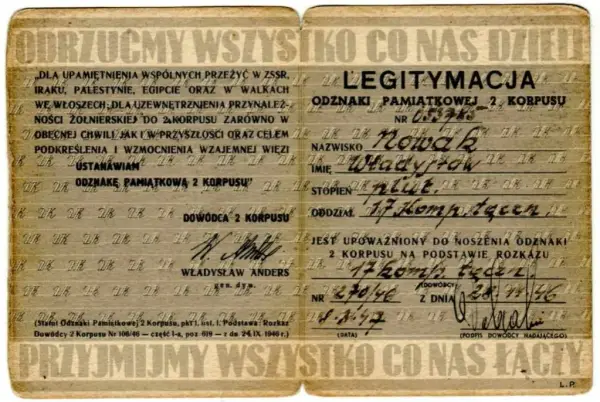 ODRZUĆMY WSZYSTKO CO NAS DZIELI
„DLA UPAMIĘTNIENIA WSPÓLNYCH PRZEŻYĆ W ZSSR,
IRAKU, PALESTYNIE, EGIPCIE ORAZ W WALKACH
WE WŁOSZECH; DLA UZEWNĘTRZNIENIA PRZYNALEŻ-
NOŚCI ŻOŁNIERSKIEJ DO 2 KORPUSU ZARÓWNO W
OBECNEJ CHWILI JAK I W PRZYSZŁOŚCI ORAZ CELEM
PODKREŚLENIA I WZMOCNIENIA WZAJEMNEJ WIĘZI
USTANAWIAM
ODZNAKĘ PAMIĄTKOWĄ 2 KORPUSU"
DOWÓDCA 2 KORPUSU
WŁADYSŁAW ANDERS
gen. dyw.
(Statut Odznaki Pamiątkowej 2 Korpusu, pkt 1, ust. 1. Podstawa: Rozkaz
Dowódcy 2 Korpusu Nr 106/46 — część I-a, poz 619 — z dn 24.IX.1946 r.)
LEGITYMACJA
ODZNAKI PAMIĄTKOWEJ 2 KORPUSU
NR
NAZWISKO Nowak
IMIĘ Władysław
STOPIEŃ plut.
ODDZIAŁ 17 Komp. łączn
JEST UPOWAŻNIONY DO NOSZENIA ODZNAKI
2 KORPUSU NA PODSTAWIE ROZKAZU
17 komp. łączn
(DOWÓDCY)
NR 270/46 Z DNIA 28 46
(DATA) (PODPIS DOWÓDCY NADAJĄCEGO)
PRZYJMIJMY WSZYSTKO CO NAS ŁĄCZY
L.P.